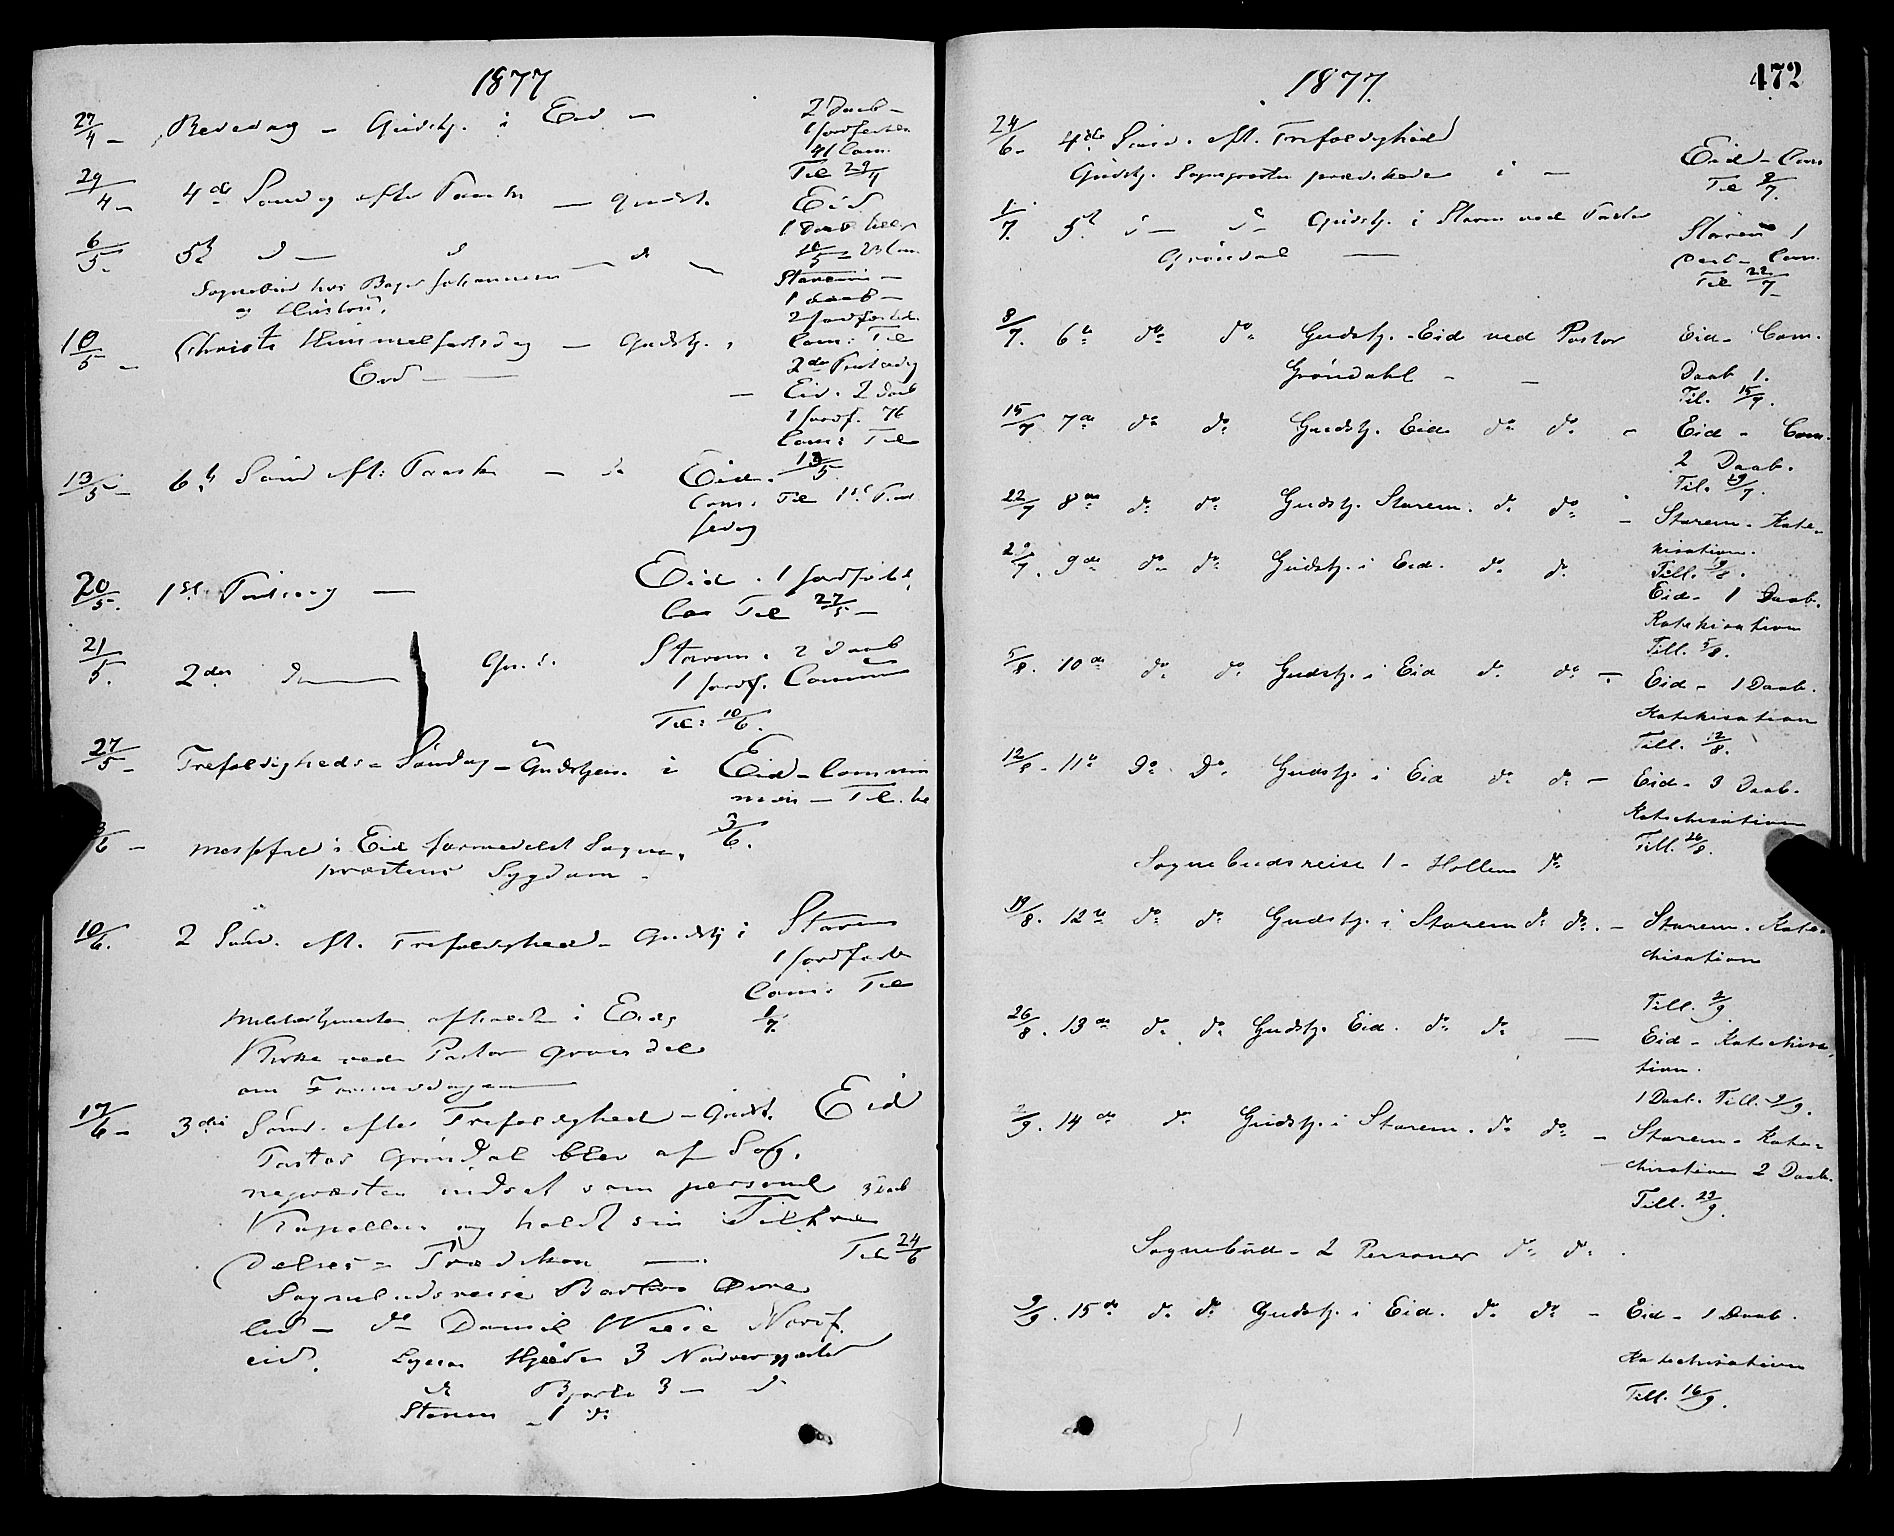 1877
27/4 - Bededag - Gudstj. i Eid -
2 Daab -
1 Jordfestelse
41 Com.
Til 29/4
29/4 - 4de Søndag efter Paaske - Gudst.
Eid
1 Daab
6/5. 5te d - d - d -
Sognebud hos Bager Johannesen
og Hustru.
Starem -
1 Daab -
2 Jordfestel.
10/5 - Christi Himmelfartsdag - Gudstj. i
Eid -
Com: Til
2den Pintsedag
- Eid. 2 Daab
1 Jordf. 76
Com: Til
13/5
13/5 - 6te Sønd eft: Paaske - d
Eid.
Com: Til 1ste Pint
sedag
20/5. 1ste Pintsedag -
Eid. 1 Jordfæstel.
Com Til 27/5 -
21/5. 2den d - Gu. i.
Starem. 2 Daab
1 Jordf. Commun
Til: 10/6.
27/5 - Trefoldigheds-Søndag - Gudstjen. i
Eid - Commun
nion - Til.
3/6.
3/6 - Messefald i Eid formedelst Sogne-
præstens Sygdom -
10/6. 2 Sønd. eft. Trefoldighed - Gudstj i
Starem
1 Jordfæstel
Com: Til
1/7.
afholdt i Eids
Kirke ved Pastor Grøndal
om Formiddagen
17/6 - 3die Sønd. efter Trefoldighed - Gudst. Eid
Pastor Grøndal blev af Sog-
nepræsten indsat som personel 3 Daab
Kapellan og holdt sin Tiltræ
delses-Prædiken - Til 24/6
Sognebudsreise
- do Daniel Nordf.
eid. Hjelde 3 Nadvergjæster
d 3 - d
Starem - 1 do
1877.
472
24/6 - 4de Sønd. eft. Trefoldighed
Gudstj. Sognepræsten prædikede i -
Eid - Com
Til 8/7.
1/7. 5te d - d - Gudstj. i Starem ved Pastor
Grøndal -
Starem 1
Daab - Com.
Til 22/7
8/7. 6te do do Gudstj. - Eid ved Pastor
Grøndahl - -
Eid - Com.
Daab 1.
Til. 15/7.
15/7 7de do do Gudstj. Eid do do -
Eid - Com.
2 Daab.
Til. 29/7.
22/7 8de do do Gudstj. Starem. do do -
Starem - Kate-
kisation.
Till. 19/8.
29/7. 9de do do Gudstj. i Eid. do do
Eid - 1 Daab.
Katekisation
Till. 5/8.
5/8. 10de do do Gudstj. i Eid do do -
Eid - 1 Daab.
Katekisation
Till. 12/8.
12/8 - 11te Do Do Gudstj. i Eid do do -
Eid - 3 Daab.
Katechisation
Till. 26/8.
Sognebudsreise 1 - Hollene do
19/8. 12te do do Gudstj. i Starem do do. -
Starem - Kate-
chisation
Till. 2/9.
26/8. 13de do do Gudstj. Eid. do do -
Eid - Katechisa-
tion.
1 Daab. Till. 9/9.
2/9. 14de do Gudstj. i Starem. do do -
Starem - Kate-
chisation 2 Daab.
Till. 23/9.
Sognebud - 2 Personer do do.
9/9. 15de do do Gudstj. i Eid. do do -
Eid - 1 Daab.
Katechisation
Till. 16/9.